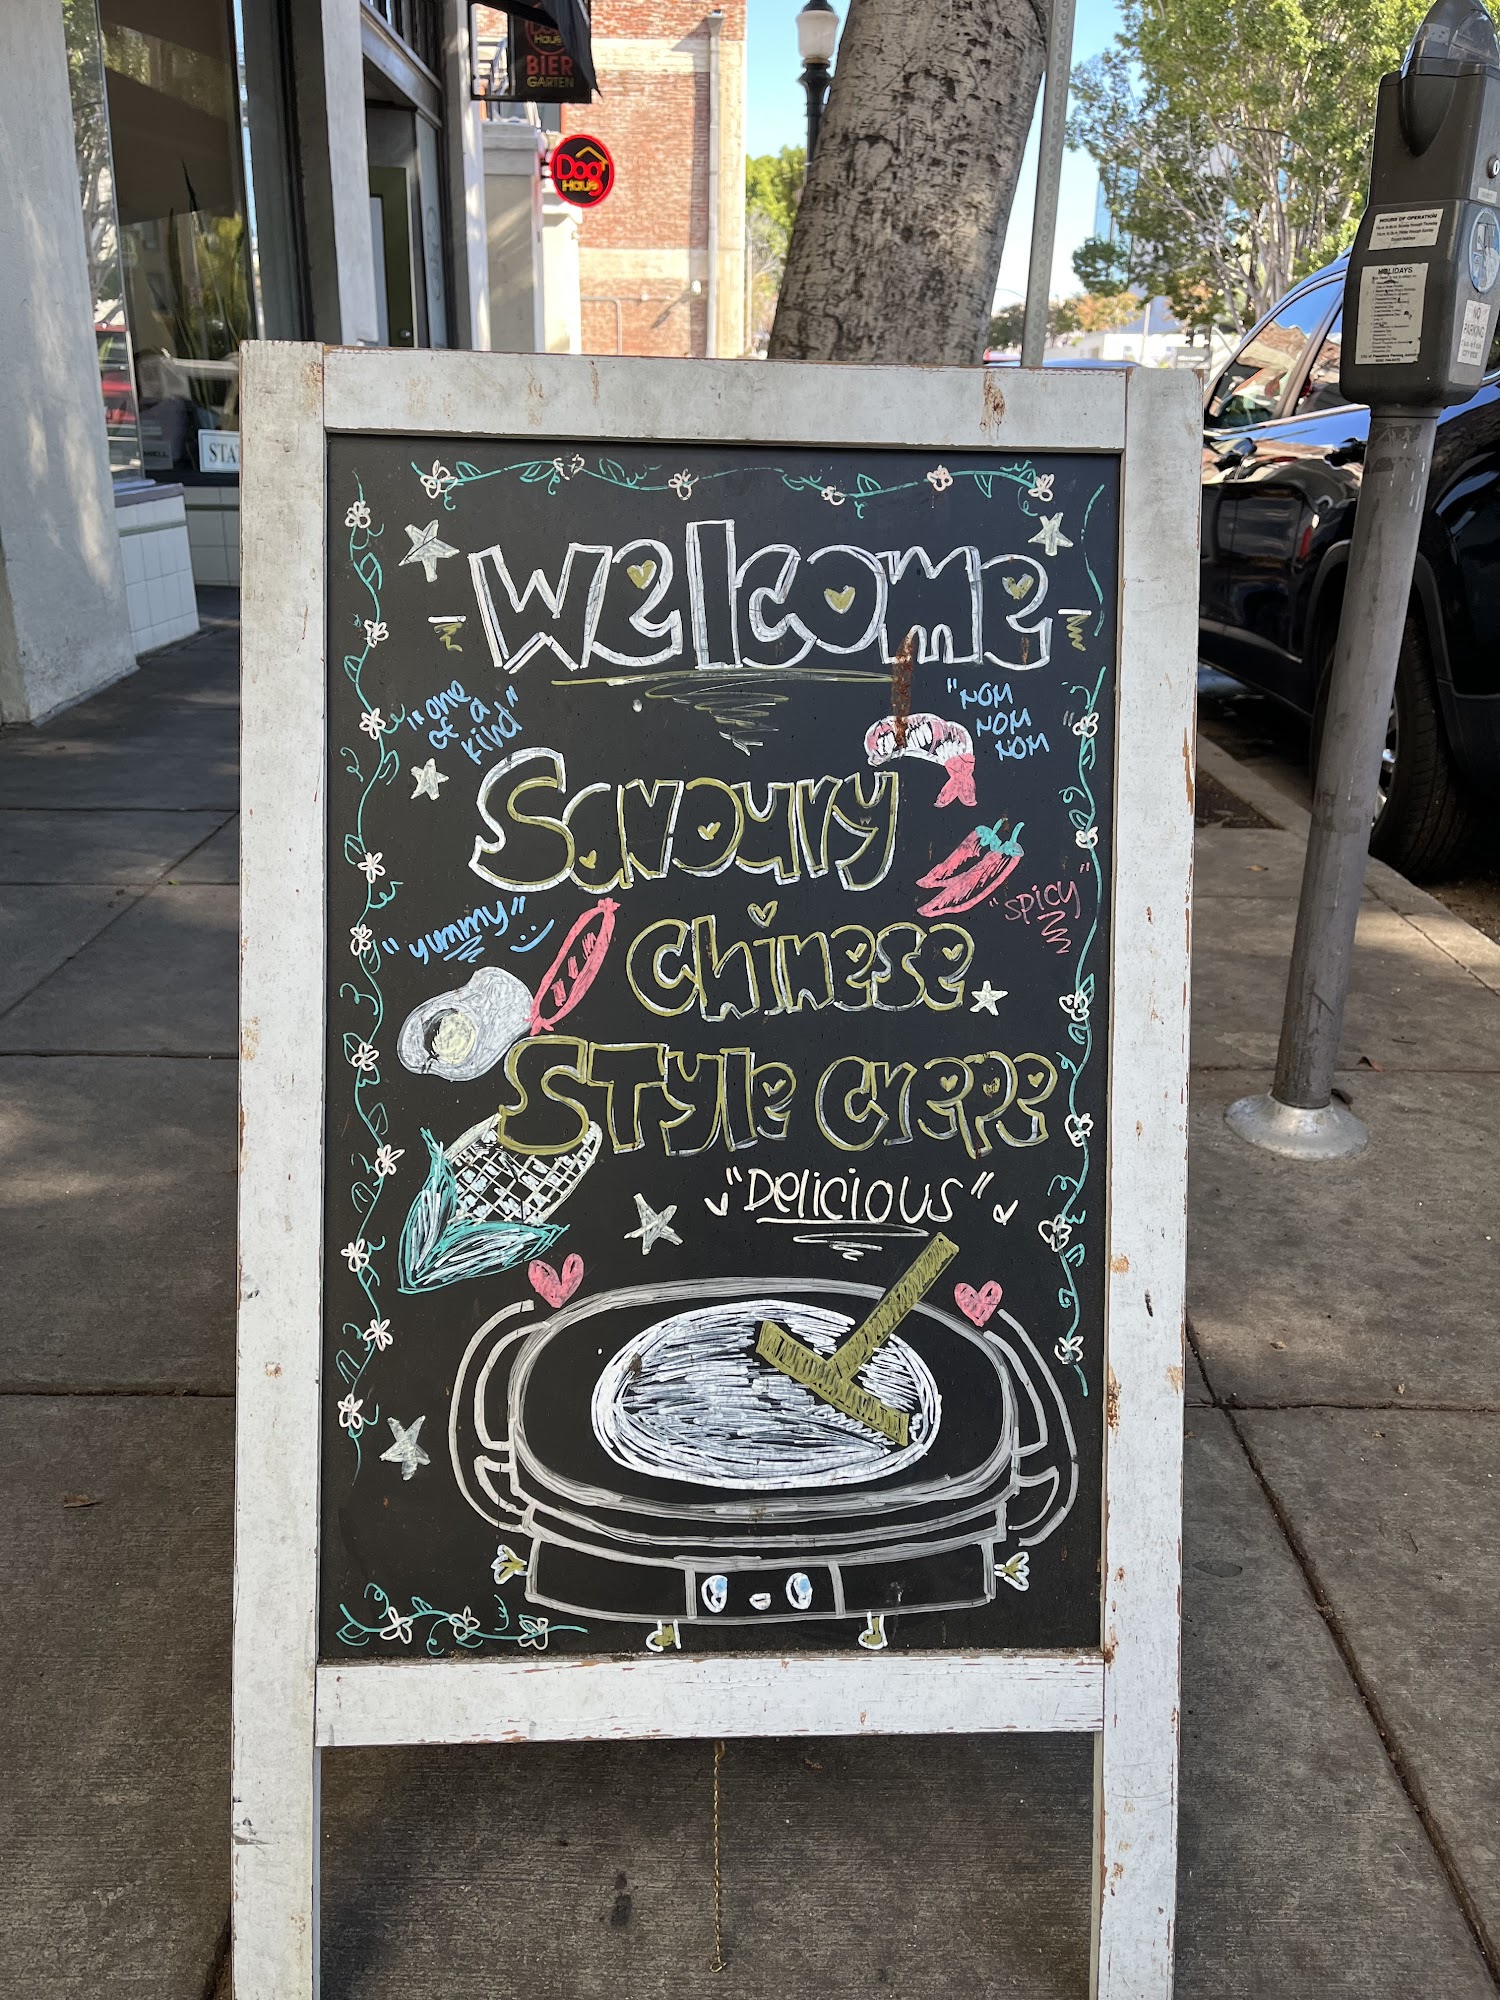 Haus
BIER
GARTEN
Dog
Haus
STA
welcome
"one
of a
kind"
"NOM
NOM
NOM
Savoury
"SPICY"
"yummy"
Chinese
STyle crepe
"Delicious"
HOURS OF OPERATION
HOLIDAYS
NO
PARKING